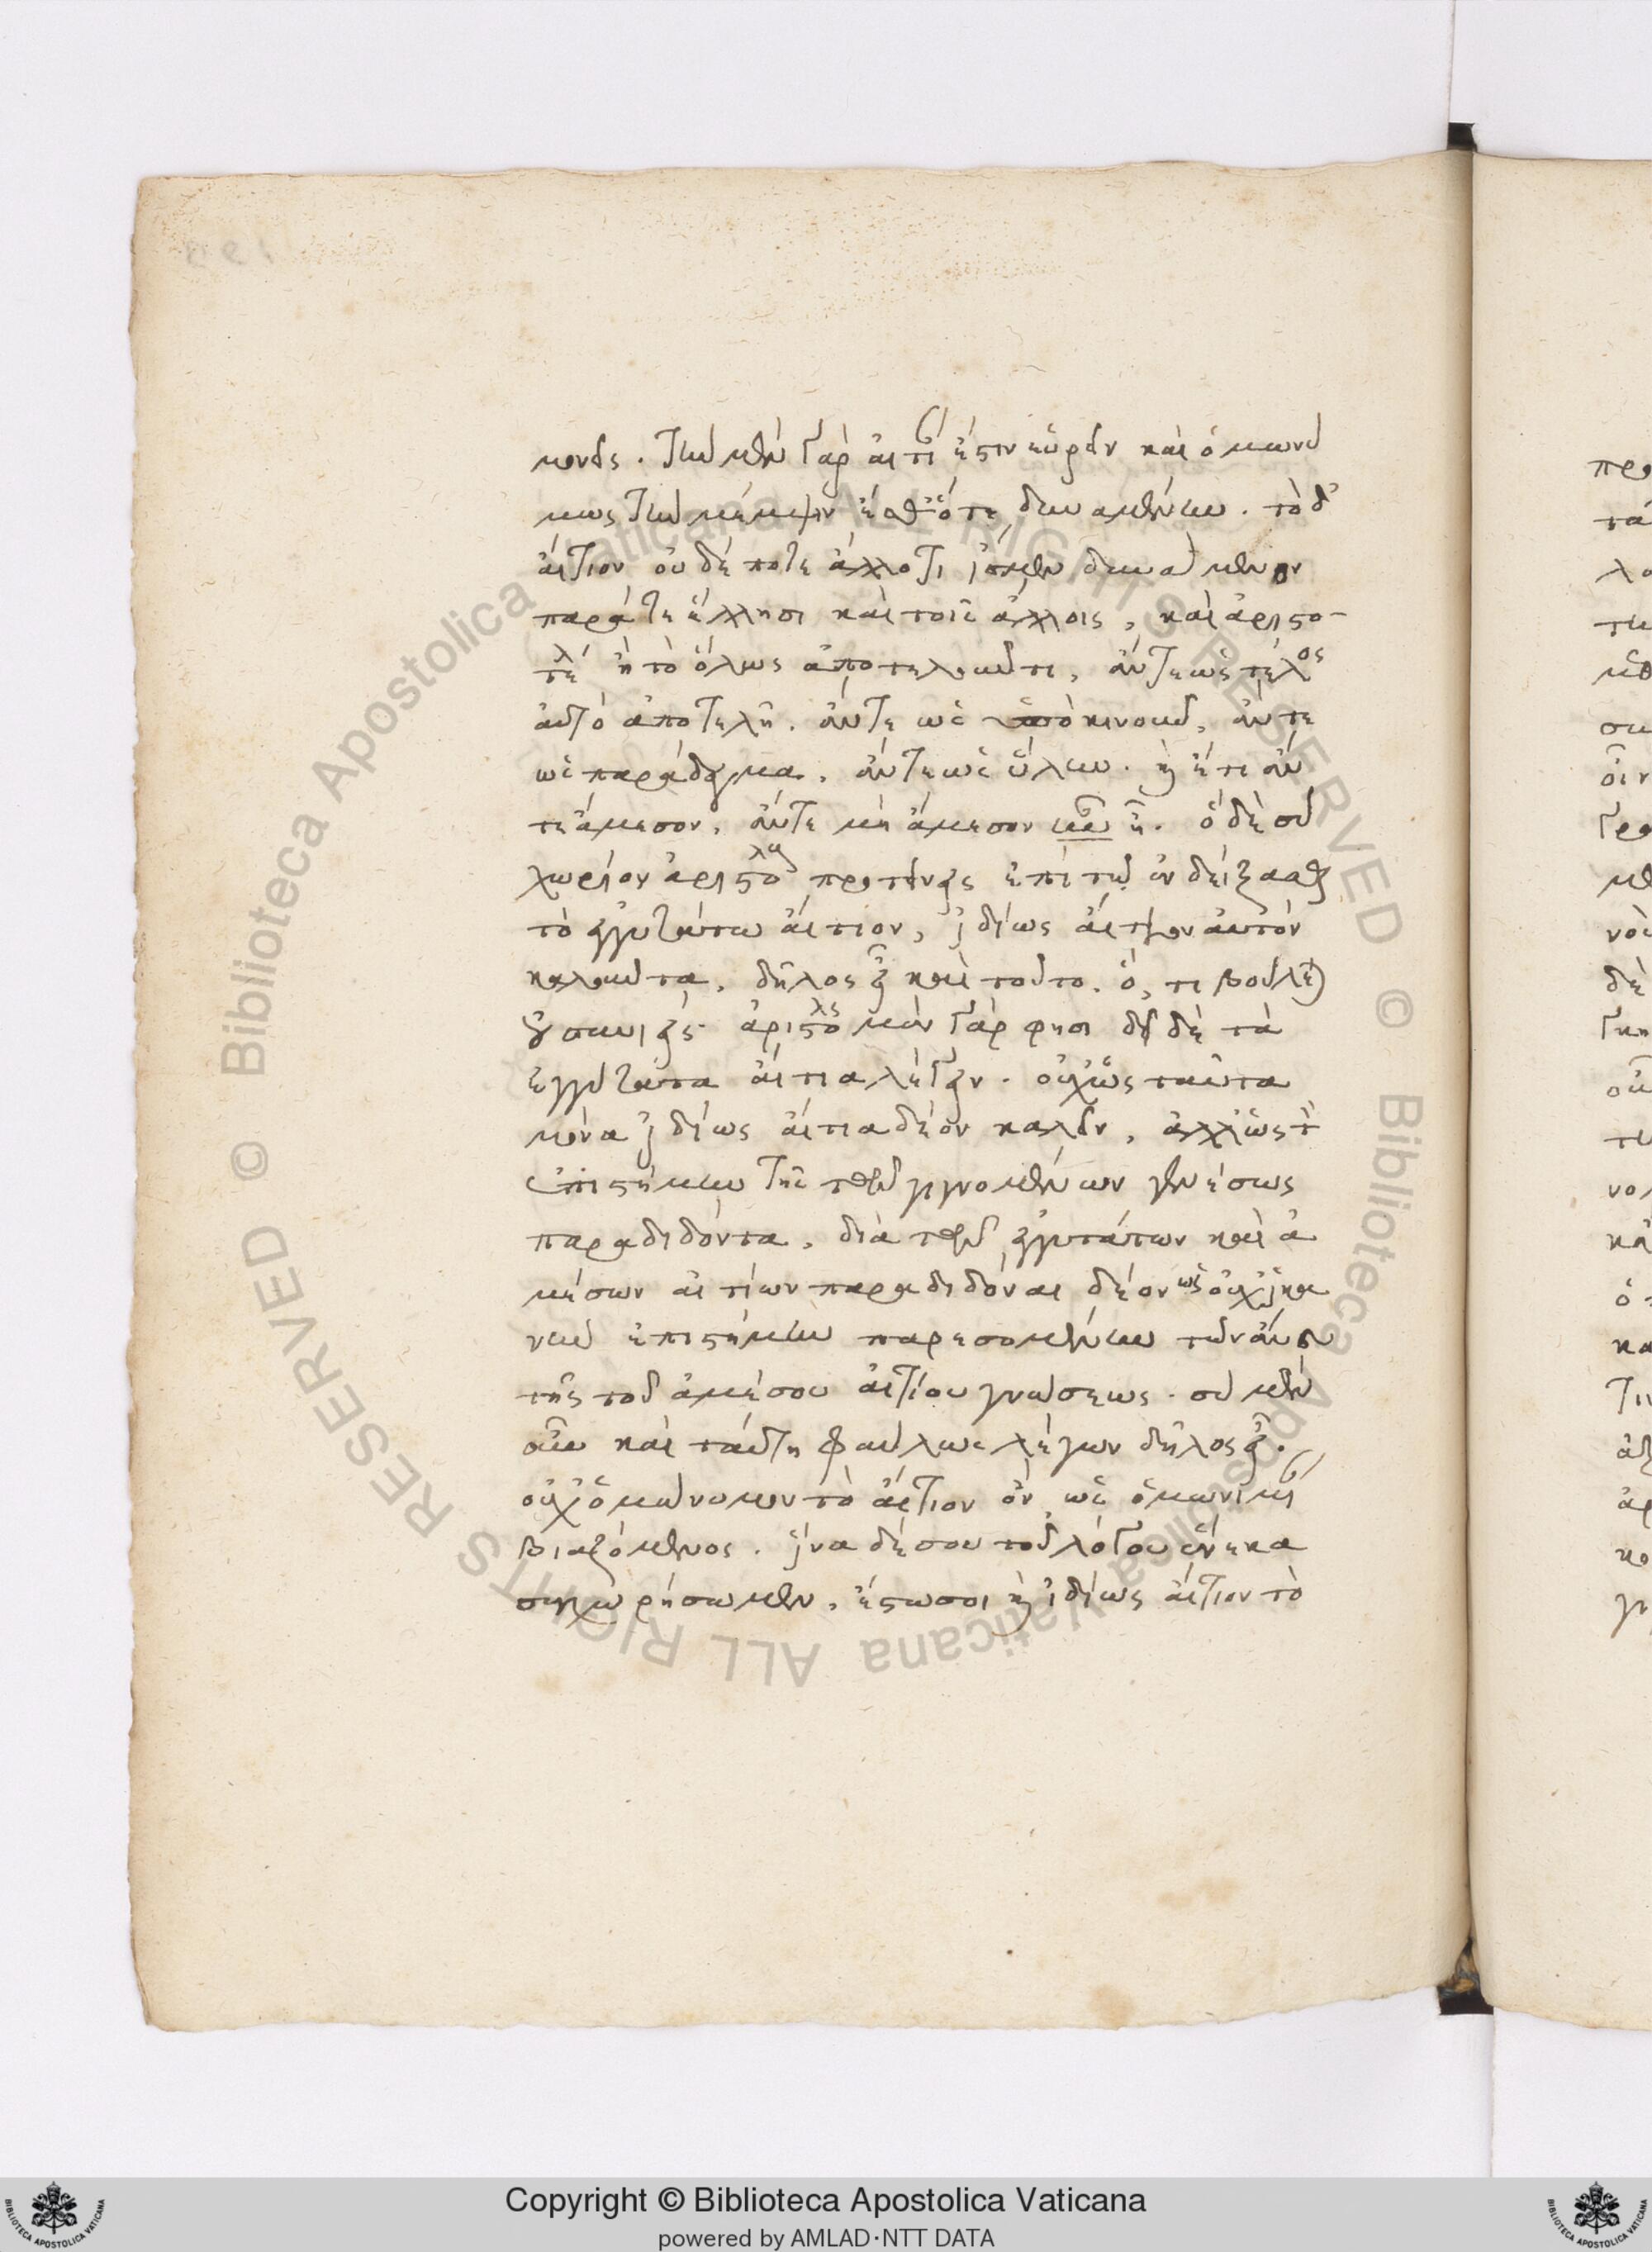 μονεῖς. τὴν μὲν γὰρ αἰτίαν ἔστιν εὑρεῖν καὶ ὁμωνύ
μως τὴν μέμψιν ἔσθ' ὅτε δυναμένην. τὸ δ'
αἴτιον οὐδέποτε ἄλλό τι ἴσμεν δυνάμενον
παρά τε ἕλλησι καὶ τοῖς ἄλλοις, καὶ ἀριστο-
τέλει ἢ τὸ ὅλως ἀποτελοῦν τι, ἄν τε ὡς τέλος
αὐτὸ ἀποτελῇ. ἄν τε ὡς κινοῦν, ἄν τε
ὡς παράδειγμα. ἄν τε ὡς ὕλην. καὶ ἔτι ἄν
τε ἄμεσον, ἄν τε μὴ ἄμεσον ᾖ. ὃ δὲ σὺ
χωρίον ἀριστοτέλους προτείνεις ἐπὶ τῷ ἐνδείξασθαι
τὸ ἐγγυτάτω αἴτιον, ἰδίως αἴτιον αὐτὸν
καλοῦντα, δῆλος εἶ καὶ τοῦτο ὅ, τι βούλεται
οὐ συνιείς. ἀριστοτέλης μὲν γάρ φησι δεῖ δὲ τὰ
ἐγγύτατα αἴτια λέγειν. οὐχ ὡς ταῦτα
μόνα ἰδίως αἴτια δέον καλεῖν, ἀλλ' ὡς τὸν
ἐπιστήμην τῆς τῶν γιγνομένων γενέσεως
παραδιδόντα, διὰ τῶν ἐγγυτάτων καὶ ἀ
μέσων αἰτίων παραδιδόναι δέον ὡς οὐχ ἱκα
νὴν ἐπιστήμην παρεσομένην τῶν ἄνευ
τῆς τοῦ ἀμέσου αἰτίου γνώσεως. σὺ μὲν
οὖν καὶ ταύτῃ φαύλως λέγων δῆλος εἶ.
οὐχ ὁμώνυμον τὸ αἴτιον ὂν, ὡς ὁμώνυμον
βιαζόμενος. ἵνα δέ σου τοῦ λόγου ἕνεκα
συγχωρήσωμεν, ἔστω σοι καὶ ἰδίως αἴτιον τὸ
Copyright © Biblioteca Apostolica Vaticana
powered by AMLAD·NTT DATA